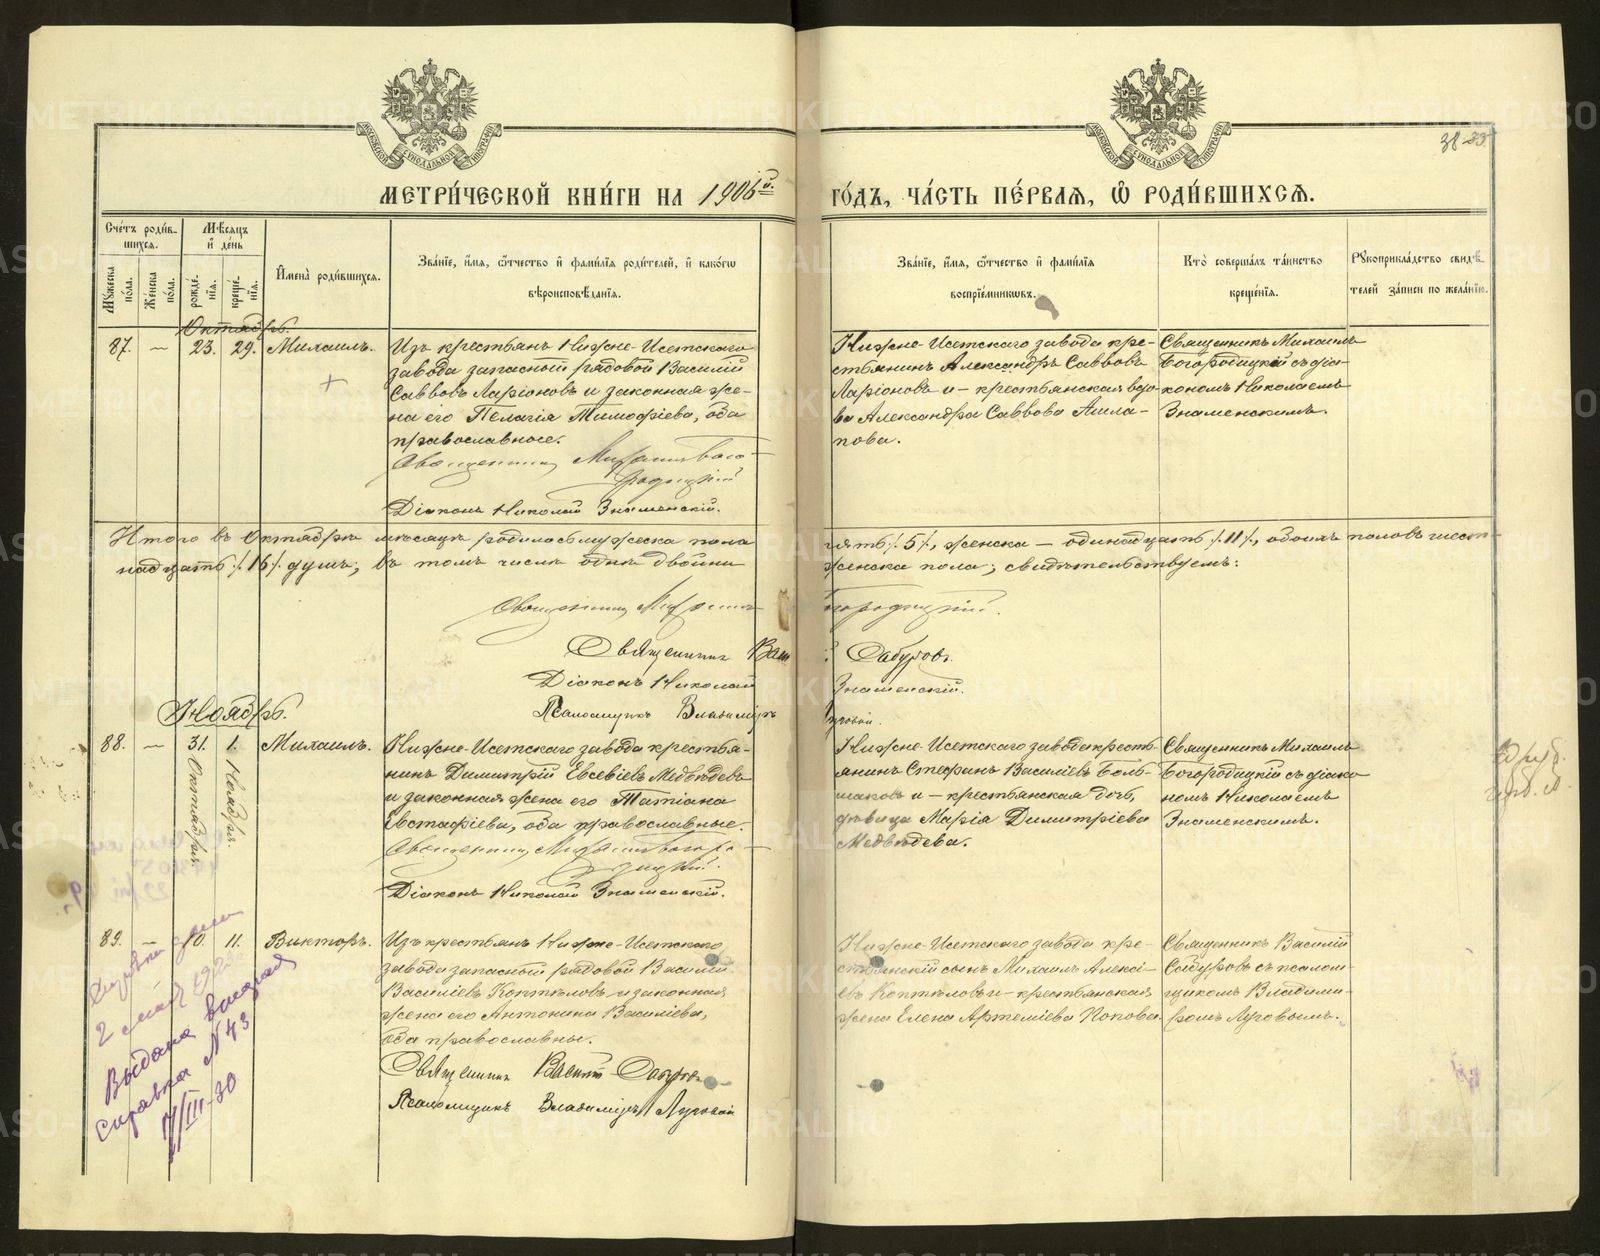 38-39
МЕТРИ́ЧЕСКОЙ КНИ́ГИ НА 1906й. ГО́ДЪ, ЧА́СТЬ ПЕ́РВАѦ, Ѡ҆ РОДИ́ВШИХСѦ.
Сче́тъ роди́в-
шихсѧ.
Мꙋ́жеска по́ла.
Же́нска по́ла.
Мѣ́сѧцъ
и҆ де́нь
рожде́-
нїѧ.
креще́-
нїѧ.
И҆мена̀ роди́вшихсѧ.
Зва́нїе, и҆́мѧ, ѻ҆́тчество и҆ фамѝлїѧ роди́телей, и҆ како́гѡ
вѣроисповѣ́данїѧ.
Зва́нїе, и҆́мѧ, ѻ҆́тчество и҆ фамѝлїѧ
воспрїе́мникѡвъ.
Кто̀ соверша́лъ та́инство
креще́нїѧ.
Рꙋкоприкла́дство свидѣ́-
телей за́писи по жела́нїю.
Октябрь.
87. — 23. 29. Михаилъ.
Изъ крестьянъ Нижне-Исетскаго
завода запасный рядовой Василій
Саввовъ Ларіоновъ и законная же-
на его Пелагія Тимофіева, оба
православные.
Священникъ Михаилъ Бого-
родицкій
Діаконъ Николай Знаменскій.
Нижне-Исетскаго завода кре-
стьянинъ Александръ Саввовъ
Ларіоновъ и – крестьянская вдо-
ва Александра Саввова Ашла-
пова.
Священникъ Михаилъ
Богородицкій съ діа-
кономъ Николаемъ
Знаменскимъ.
Итого въ Октябрѣ мѣсяцѣ родилось мужеска пола пять /5/, женска — одинадцать /11/, обоихъ половъ шест-
надцать /16/ душъ; въ томъ числѣ однѣ двойни женска пола; свидѣтельствуемъ:
Священникъ Михаилъ Богородицкій.
Священникъ Сабуровъ.
Діаконъ Николай Знаменскій.
Псаломщикъ Владиміръ Луговой.
Ноябрь.
88. — 31. Октября. 1. Ноября. Михаилъ.
Нижне-Исетскаго завода крестья-
нинъ Димитрій Евсевіевъ Медвѣдевъ
и законная жена его Татіана
Евстафіева, оба православные.
Священникъ Михаилъ Богоро-
дицкій.
Діаконъ Николай Знаменскій.
Нижне-Исетскаго завода кресть-
янинъ Стефанъ Василіевъ Боль-
шаковъ и – крестьянская дочь,
дѣвица Марія Димитріева
Медвѣдева.
Священникъ Михаилъ
Богородицкій съ діако-
номъ Николаемъ
Знаменскимъ.
89. — 10. 11. Викторъ.
Изъ крестьянъ Нижне-Исетскаго
завода запасный рядовой Василій
Василіевъ Коптѣловъ и законная
жена его Антонина Василіева,
оба православные.
Священникъ Василій Сабуровъ
Псаломщикъ Владиміръ Луговой
Нижне-Исетскаго завода кре-
стьянскій сынъ Михаилъ Алексі-
евъ Коптѣловъ и – крестьянская
жена Елена Артеміева Попова.
Священникъ Василій
Сабуровъ съ псалом-
щикомъ Владимі-
ромъ Луговымъ.
2 мая
Выдана
справка N 43
17/III-30